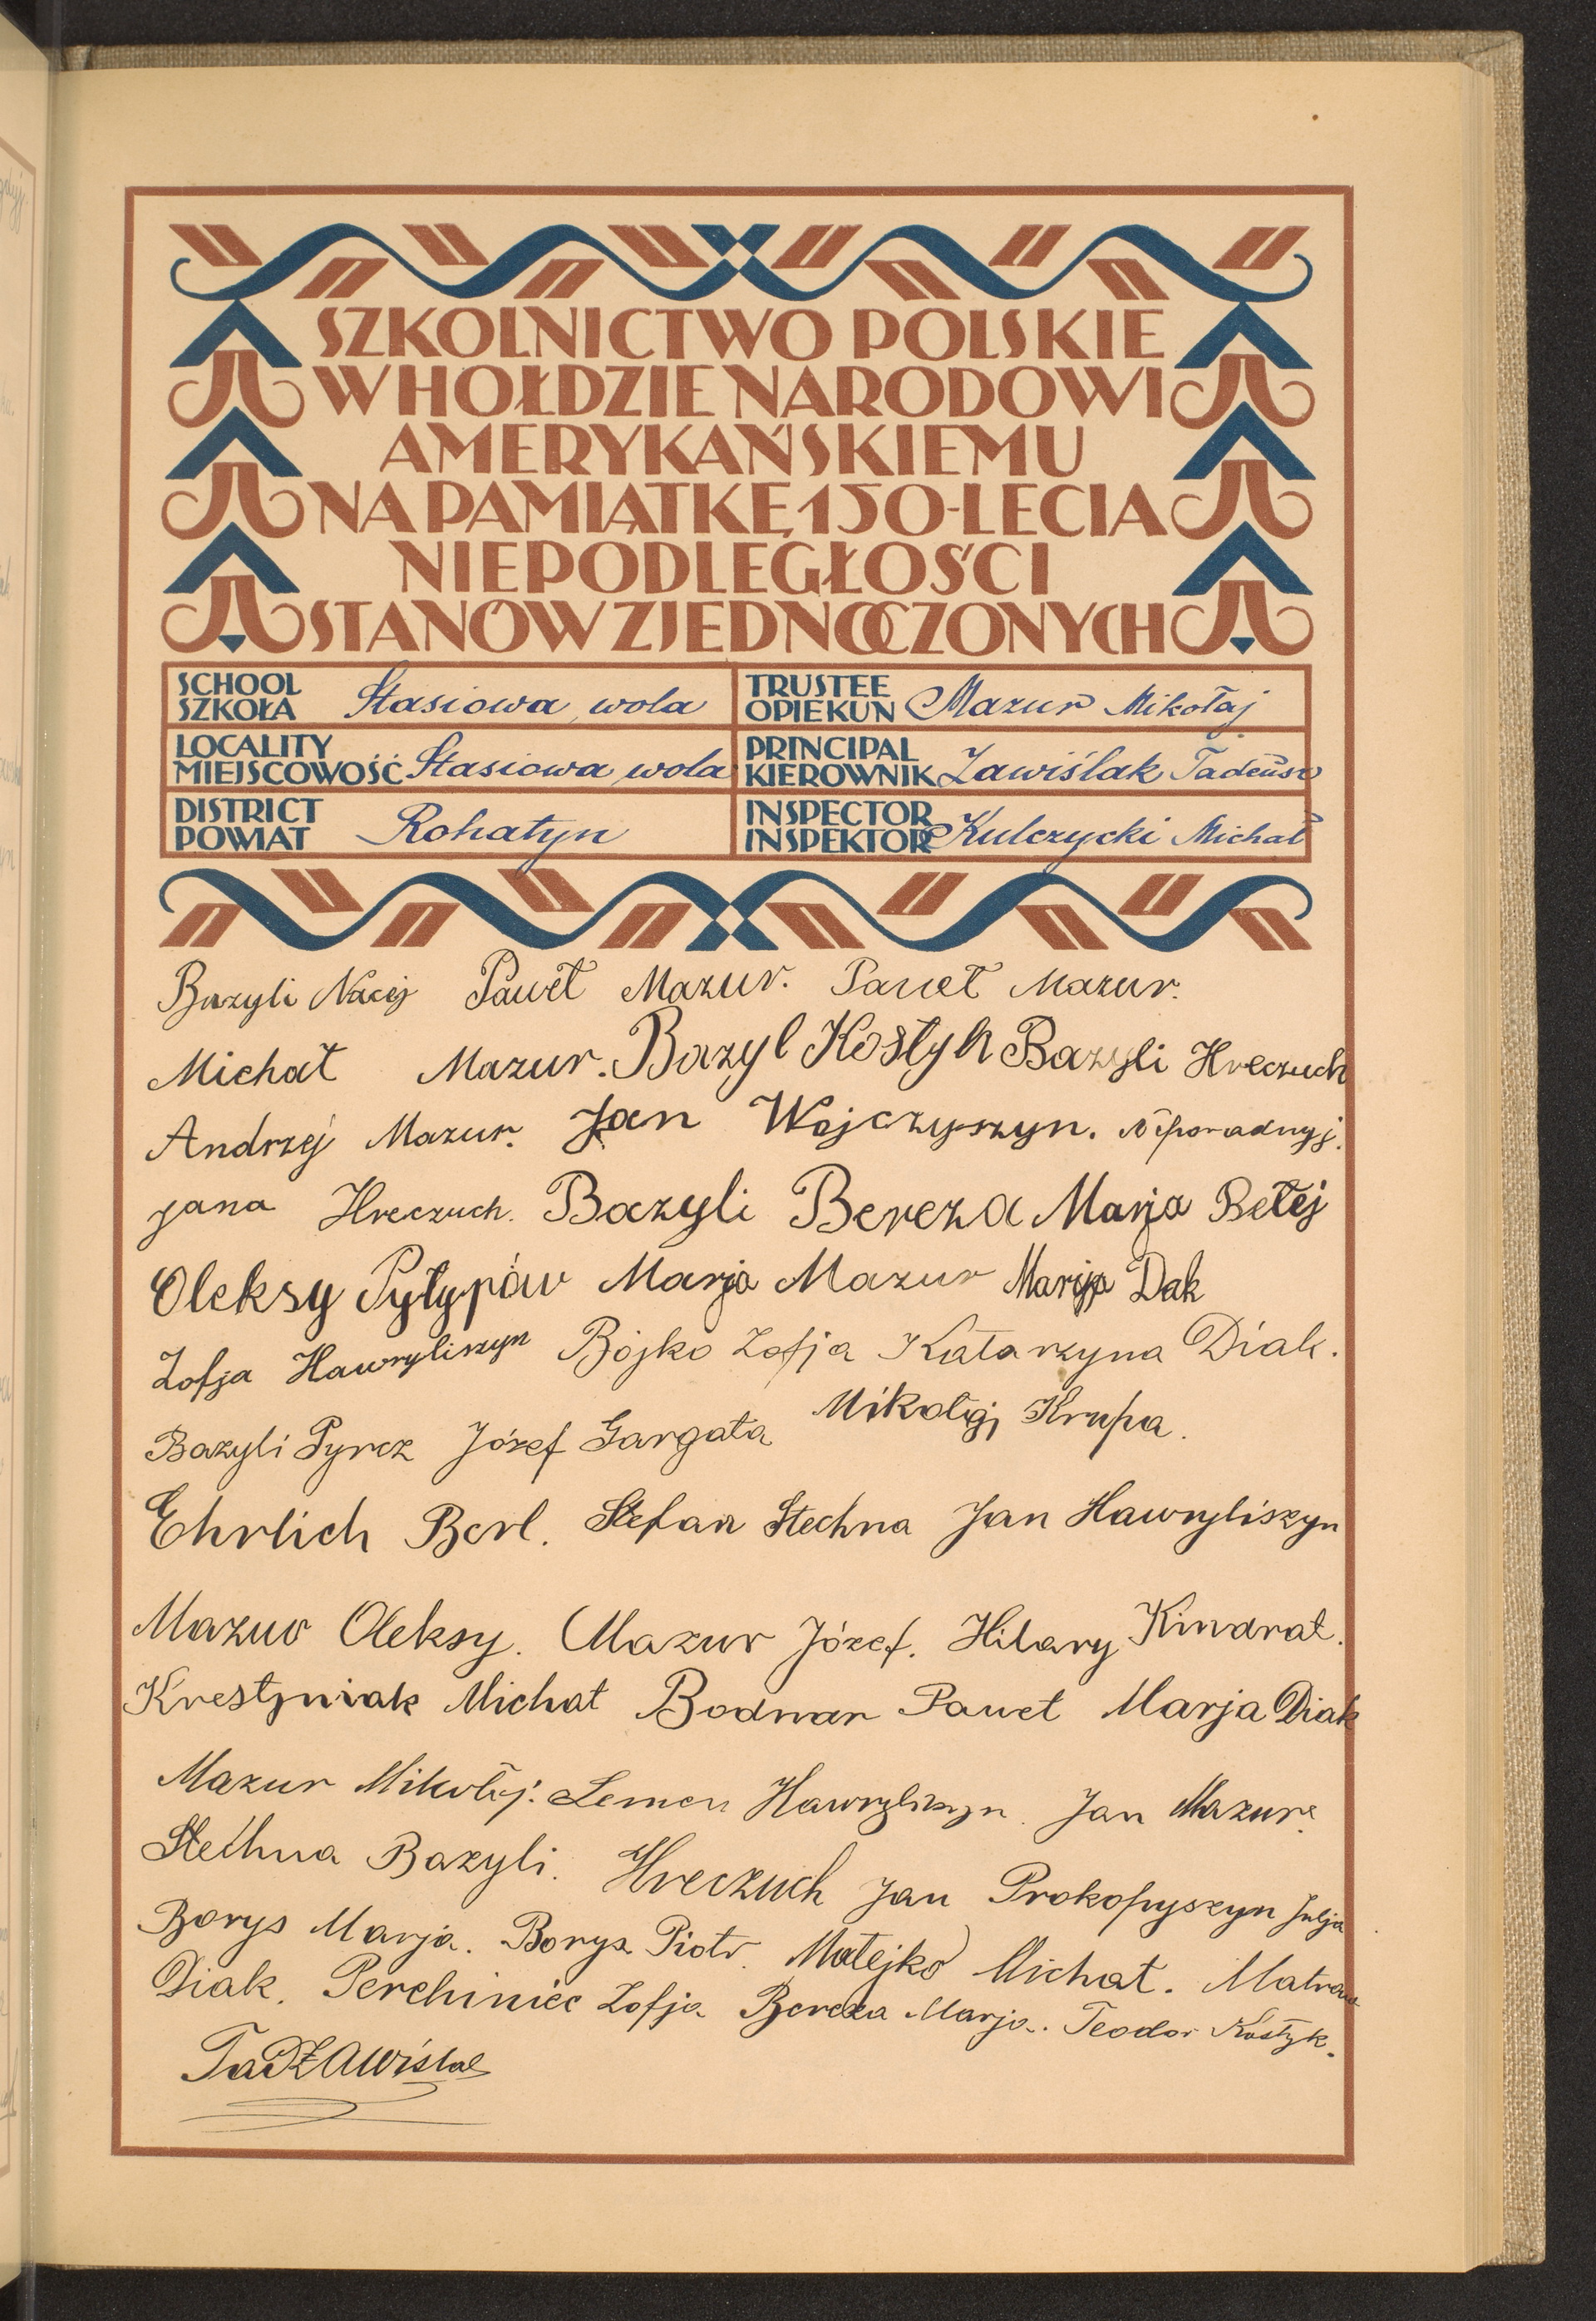 SZKOLNICTWO POLSKIE
W HOŁDZIE NARODOWI
AMERYKAŃSKIEMU
NA PAMIĄTKĘ 150-LECIA
NIEPODLEGŁOŚCI
STANÓW ZJEDNOCZONYCH
SCHOOL SZKOŁA Stasiowa wola
TRUSTEE OPIEKUN Mazur Mikołaj
LOCALITY MIEJSCOWOŚĆ Stasiowa wola
PRINCIPAL KIEROWNIK Zawiślak Tadeusz
DISTRICT POWIAT Rohatyn
INSPECTOR INSPEKTOR Kulczycki Michał
Bazyli Nacej Paweł Mazur. Paweł Mazur.
Michał Mazur. Bazyl Kostyk Bazyli Hreczuch
Andrzej Mazur. Jan Wojczyszyn. Niporadnyj.
jana Hreczuch. Bazyli Bereza Marja Bełej
Oleksy Pyłypów Marja Mazur Marija Dak
Zofja Hawryliszyn Bojko Zofja Katarzyna Diak.
Bazyli Pyrcz Józef Gargała Mikołaj Krupa.
Ehrlich Berl. Stefan Stechna Jan Hawryliszyn
Mazur Oleksy. Mazur Józef. Hilary Kindrat.
Krestyniak Michał Bodnar Paweł Marja Diak
Mazur Mikołaj. Semen Hawryliszyn. Jan Mazur.
Stechna Bazyli. Hreczuch Jan Prokopyszyn Julja
Borys Marja. Borys Piotr. Matejko Michał.
Diak. Perehiniec Zofja Bereza Marja. Teodor Kostyk.
Tad Zawiślak